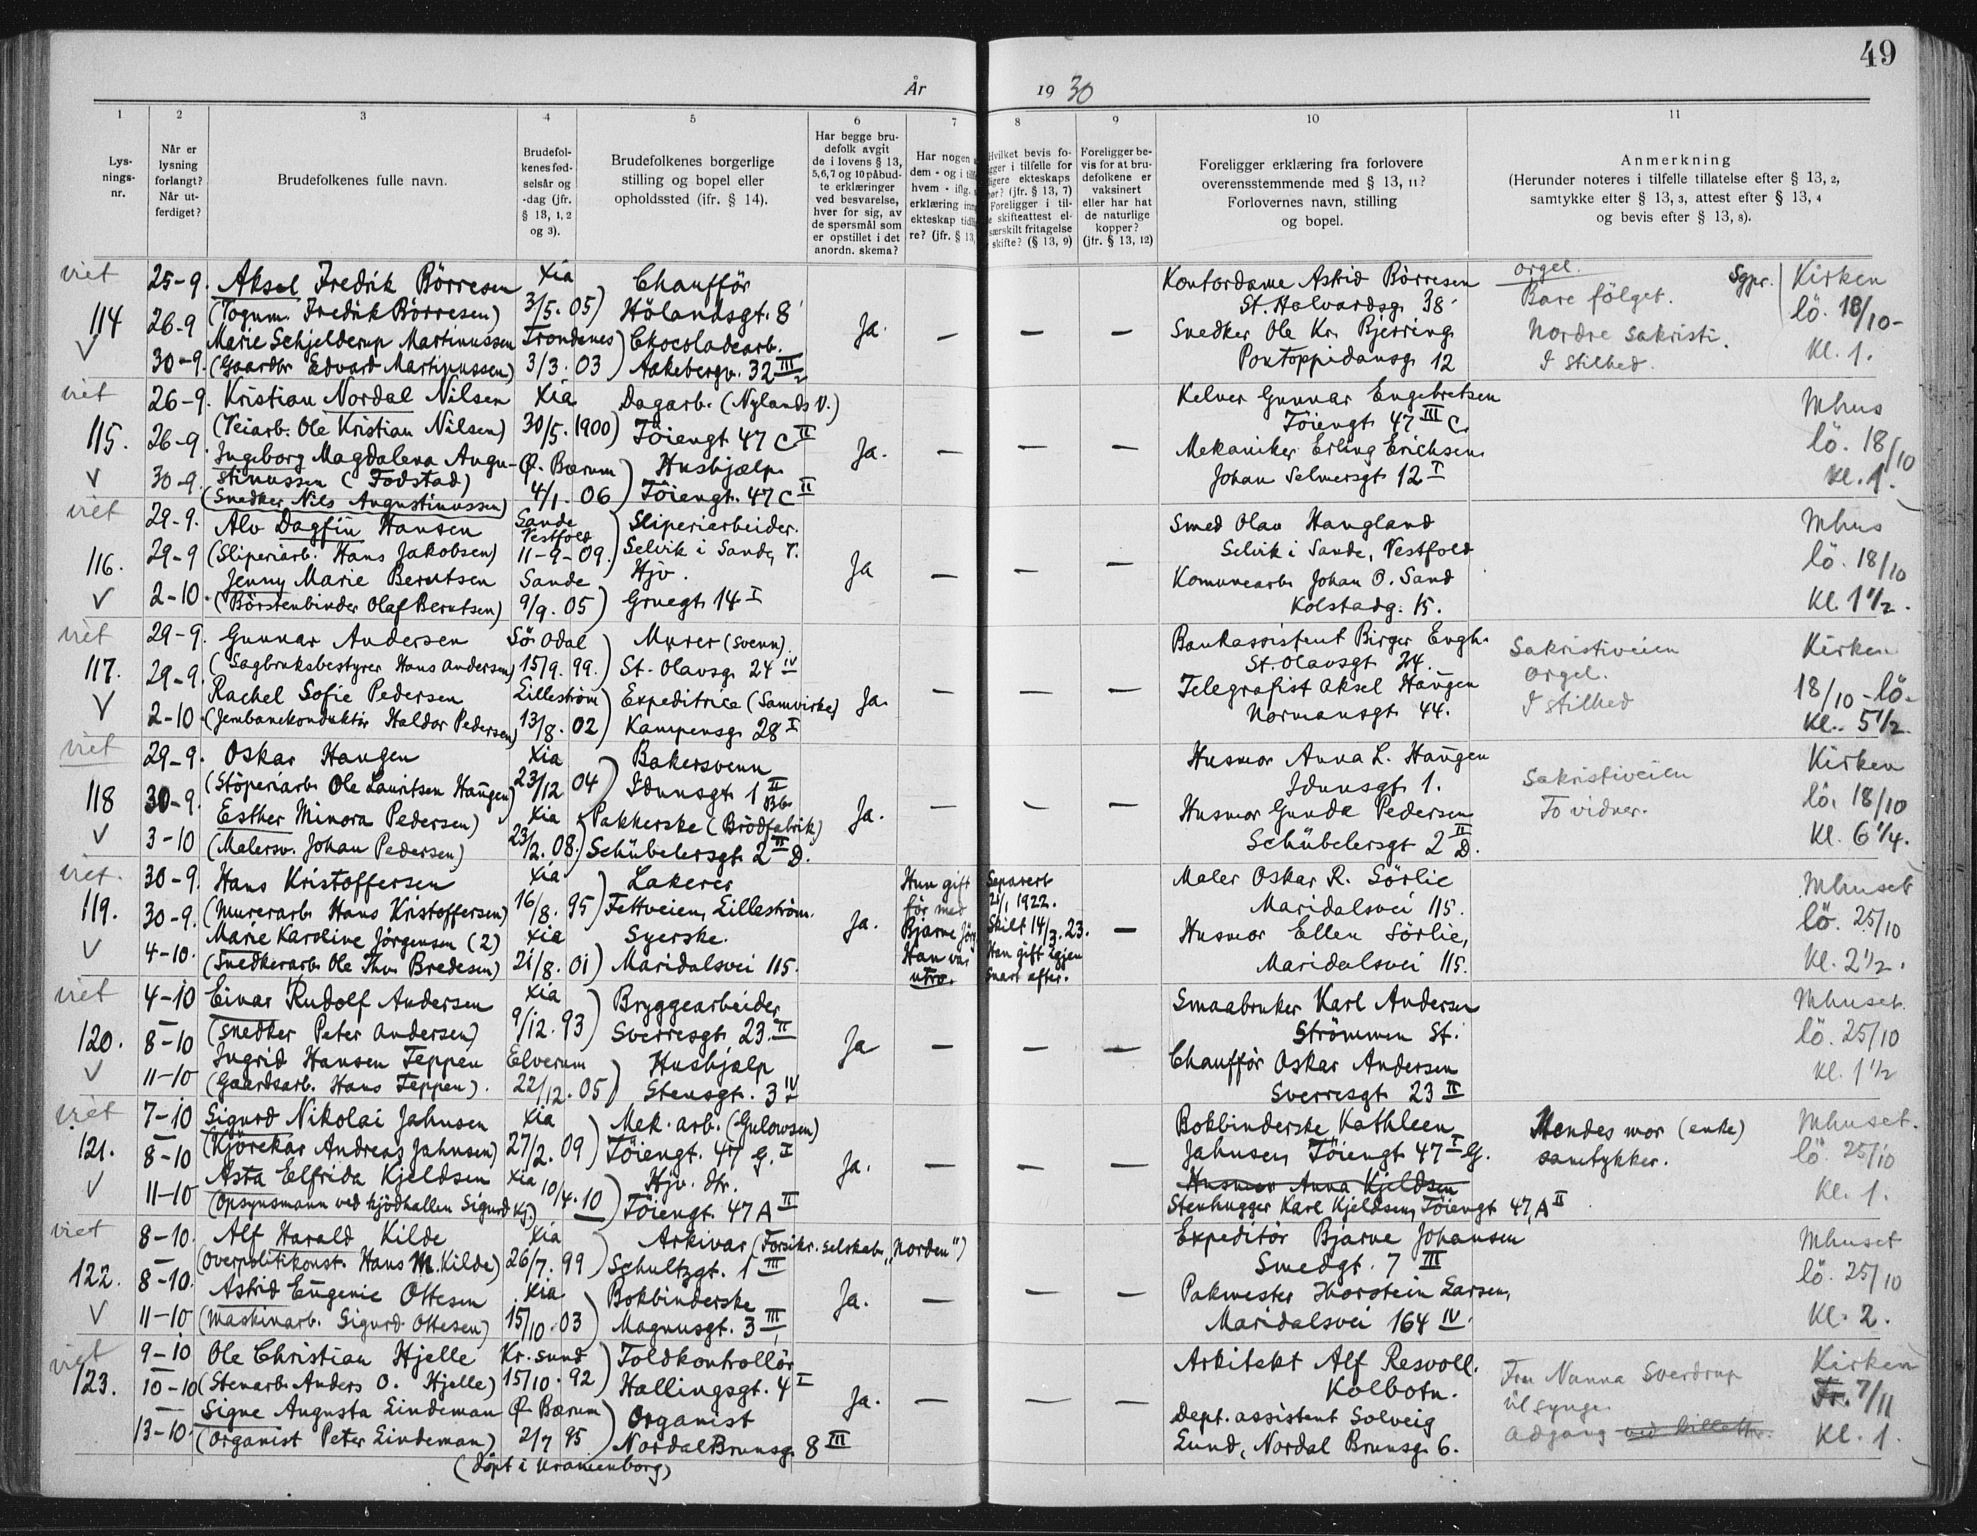 49
År 1930
1 2 3 4 5 6 7 8 9 10 11
Lys-
nings-
nr.
Når er
lysning
forlangt?
Når ut-
ferdiget?
Brudefolkenes fulle navn.
Brudefol-
kenes fød-
selsår og
-dag (jfr.
§ 13, 1, 2
og 3).
Brudefolkenes borgerlige
stilling og bopel eller
opholdssted (ifr. § 14).
Har begge bru-
defolk avgit
de i lovens § 13,
5,6,7 og 10 påbud-
te erklæringer
ved besvarelse,
hver for sig, av
de spørsmål som
er opstillet i det
anordn. skema?
Har nogen
dem - og i
hvem - iflg.
erklæring
ekteskap
re? (jfr. § 13,
Hvilket bevis fo-
ligger i tilfelle for
ekteskaps
(jfr. § 13, 7)
Foreligger i til-
skifteattest el-
særskilt fritagelse
skifte? (§ 13, 9)
Foreligger be-
vis for at bru-
defolkene er
vaksinert
eller har hat
de naturlige
kopper?
(jfr. § 13, 12)
Foreligger erklæring fra forlovere
overensstemmende med § 13, 11?
Forlovernes navn, stilling
og bopel.
Anmerkning
(Herunder noteres i tilfelle tillatelse efter § 13, 2,
samtykke efter § 13, 3, attest efter § 13, 4
og bevis efter § 13, 8).
viet 25-9. Aksel Fredrik Börresen Xia Chaufför Kontordame Astrid Börresen orgel. Sgpr. Kirken
(Tognm. Fredrik Börresen) 3/5. 05) Hölandsgt. 8 St. Halvardsg. 38 Bare fölget. lö. 18/10-
114 26-9 Marie Schjelderup Martinussen Trondenes Chocoladearb. Ja. — — — Snedker Ole Kr. Bjerring Nordre sakristi. kl. 1.
V 30-9. (Gaardbr Edvard Martinussen) 3/3. 03) Aakebergv. 32 III Pontoppidansg. 12 I stilhed.
viet 26-9. Kristian Nordal Nilsen Xia Dagarb. (Nylands V.) Kelner Gunnar Engebretsen Mhus
(Veiarb. Ole Kristian Nilsen) 30/5. 1900) Töiengt 47 C II Töiengt 47 III C. lö. 18/10
115. 26-9. Ingeborg Magdalena Augu- Ø. Bærum Hushjælp. Ja. — — — Mekaniker Erling Erichsen kl. 1.
V 30-9. stinussen (Fodstad) 4/1. 06) Töiengt. 47 C II Johan Selmersgt 12 I
(Snedker Nils Augustinussen)
viet 29-9. Alv Dagfin Hansen Sande Vestfold Sliperiarbeider. Smed Olav Haugland Mhus
116. 29-9 (Sliperiarb. Hans Jakobsen) 11-9-09.) Selvik i Sande, V. Selvik i Sande, Vestfold lö. 18/10
Jenny Marie Berntsen Sande Hjv. Ja — — — Komunearb. Johan O. Sand
V 2-10. (Börstenbinder Olaf Berntsen) 9/9. 05) Gruegt 14 I Kolstadg. 15. Kl. 1½.
viet 29-9. Gunnar Andersen Sö. Odal Murer (svenn). Bankassistent Birger Engh. Sakristiveien Kirken
117. 29-9. (Sagbruksbestyrer Hans Andersen) 15/9. 99.) St. Olavsg. 24 IV St. Olavsgt 24. orgel. 18/10 - lö.
Rachel Sofie Pedersen Lilleström Expeditrice (Samvirke) Ja. — — — Telegrafist Aksel Haugen I stilhed
V 2-10. (Jernbanekonduktör Haldor Pedersen) 13/8. 02) Kampensg. 28 I Normansgt 44. Kl. 5½.
viet 29-9. Oskar Haugen Xia Bakersvenn Husmor Anna L. Haugen Kirken
118 30-9. (Stöperiarb. Ole Lauritsen Haugen) 23/12 04) Idunsgt 1 II Bb. Idunsgt 1. Sakristiveien lö. 18/10
Esther Minora Pedersen) Xia Pakkerske (Brödfabrik) Ja. — — — Husmor Gunda Pedersen To vidner.
V 3-10 (Malersv. Johan Pedersen) 23/2. 08.) Schübelersgt. 2 II D. Schübelersgt 2 II D. Kl. 6¼.
viet 30-9. Hans Kristoffersen Xia Lakerer Hun gift Separert Maler Oskar R. Sörlie Mhuset
119. 30-9. (Murerarb. Hans Kristoffersen) 16/8. 95) Fettveien, Lilleström. Ja. för med 21/1 1922. Maridalsvei 115. lö. 25/10
Marie Karoline Jörgensen (2) Xia Syerske. Bjarne Jörg Skilt 14/3. 23. — Husmor Ellen Sörlie,
V 4-10. (Snedkerarb. Ole Thv. Bredesen) 21/8. 01) Maridalsvei 115. Han var Han gift igjen Maridalsvei 115. Kl. 2½.
utro. snart efter.
viet 4-10 Einar Rudolf Andersen Xia Bryggearbeider Smaabruker Karl Andersen Mhuset.
120. 8-10 (snedker Peter Andersen) 9/12. 93) Sverresgt. 23. II Strömmen St. lö. 25/10
Ingrid Hansen Teppen Elverum Hushjælp Ja — — — Chaufför Oskar Andersen
V 11-10 (Gaardsarb. Hans Teppen). 22/12. 05) Stensgt. 3 IV Sverresgt 23 II kl. 1½
viet 7-10 Sigurd Nikolai Jahnsen Xia Mek. arb. (Gulowsen) Bokbinderske Kathleen Mandes mor (enke) Mhuset.
121. 8-10 (Kjörekar Andreas Jahnsen) 27/2. 09) Töiengt. 47 G. I Jahnsen, Töiengt 47 I G. samtykker. lö. 25/10
Asta Elfrida Kjeldsen Xia Hjv. dtr. Ja. — — — Husmor Anna Kjeldsen
V 11-10 (Opsynsmann ved kjödhallen Sigurd Kj.) 10/4. 10) Töiengt. 47 A II Stenhugger Karl Kjeldsen, Töiengt 47, A II kl. 1.
viet 8-10. Alf Harald Kilde Xia Arkivar (Forsikr. selskab. „Norden") Expeditör Bjarne Johansen Mhuset
122. 8-10. (Overpolitikonst. Hans M. Kilde) 26/7. 99) Schultzgt. 1 III Smedgt. 7 III lö. 25/10
Astrid Eugenie Ottesen Xia Bokbinderske Ja. — — — Pakmester Thorstein Larsen,
V 11-10 (Maskinarb. Sigurd Ottesen) 15/10. 03) Magnusgt. 3 III Maridalsvei 164 IV. Kl. 2.
viet 9-10 Ole Christian Hjelle Kr.sund Toldkontrollör Arkitekt Alf Resvoll. Fru Nanna Sverdrup Kirken
123. 10-10 (Stenarb. Anders O. Hjelle) 15/10. 92) Hallingsgt. 4 I Kolbotn. vil synge. Fr. 7/11
Signe Augusta Lindeman Ø. Bærum Organist Ja. — — — Dept. assistent Solveig
13-10. (Organist Peter Lindeman) 2/7 95) Nordal Brunsg. 8 III Lund, Nordal Brunsg. 6. Adgang ved billetter. Kl. 1.
(döpt i Uranienborg)